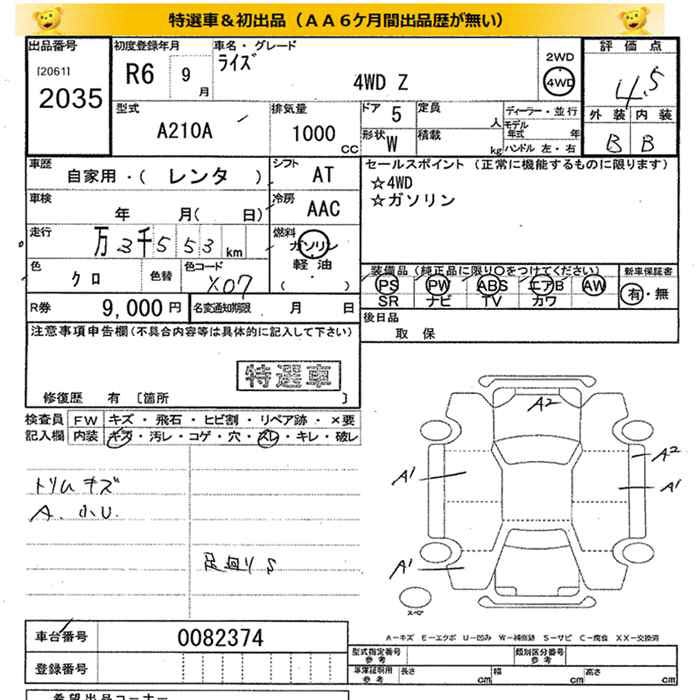 特選車&初出品（AA6ケ月間出品歴が無い）
出品番号 初度登録年月 車名・グレード 評価点
[2061] 2035 R6 9月 ライズ 4WD Z 2WD 4WD 4.5
外装 内装
B B
型式 排気量 ドア 定員 ディーラー・並行
A210A 1000cc 5 人 モデル年式 年
形状 W 積載 kg ハンドル 左・右
車歴 シフト セールスポイント（正常に機能するものに限ります）
自家用・（レンタ） AT ☆4WD
車検 冷房 ☆ガソリン
年 月( 日) AAC
走行 燃料
万3千553km ガソリン
軽油
( )
色 色替 色コード 装備品（純正品に限り○をつけてください） 新車保証書
クロ X07 PS PW ABS エアB AW 有・無
SR ナビ TV カワ
R券 9,000円 名変通知期限 月 日 後日品
取保
注意事項申告欄（不具合内容等は具体的に記入して下さい）
特選車
修復歴 有 [箇所 ]
検査員 FW キズ・飛石・ヒビ割・リペア跡・×要
記入欄 内装 キズ・汚レ・コゲ・穴・スレ・キレ・破レ
トリムキズ
A.小U.
足回りS
A2
A1
A2
A1
A1
スペア
A-キズ E-エクボ U-凹み W-補修跡 S-サビ C-腐食 XX-交換済
車台番号 0082374 型式指定番号 参考 類別区分番号 参考
登録番号 車庫証明用 参考 長さ cm 幅 cm 高さ cm
希望出品コーナー